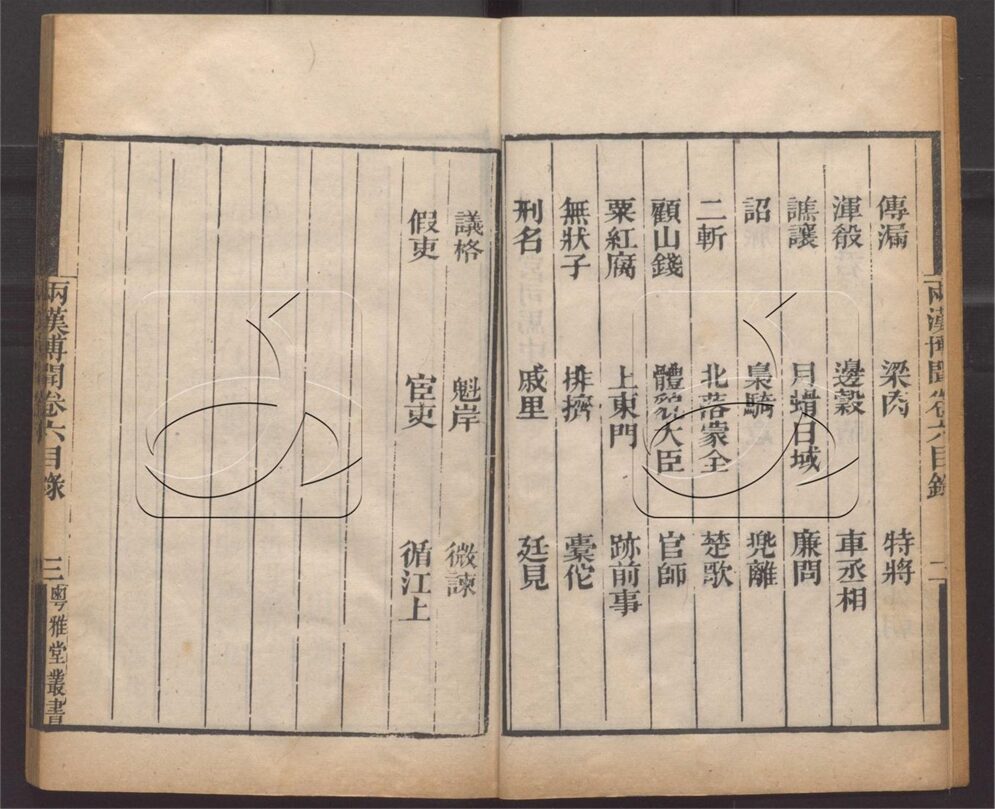 兩漢博聞卷六目錄 二
傳漏 梁肉 特將
渾殽 邊穀 車丞相
譙讓 月𧐖日域 廉問
詔 梟騎 兜離
二斬 北落 楚歌
顧山錢 體貌大臣 官師
粟紅腐 上東門 跡前事
無狀子 排擠 橐佗
刑名 戚里 廷見
議格 魁岸 微諫
假吏 宦吏 循江上
兩漢博聞卷六目錄 三 粵雅堂叢書